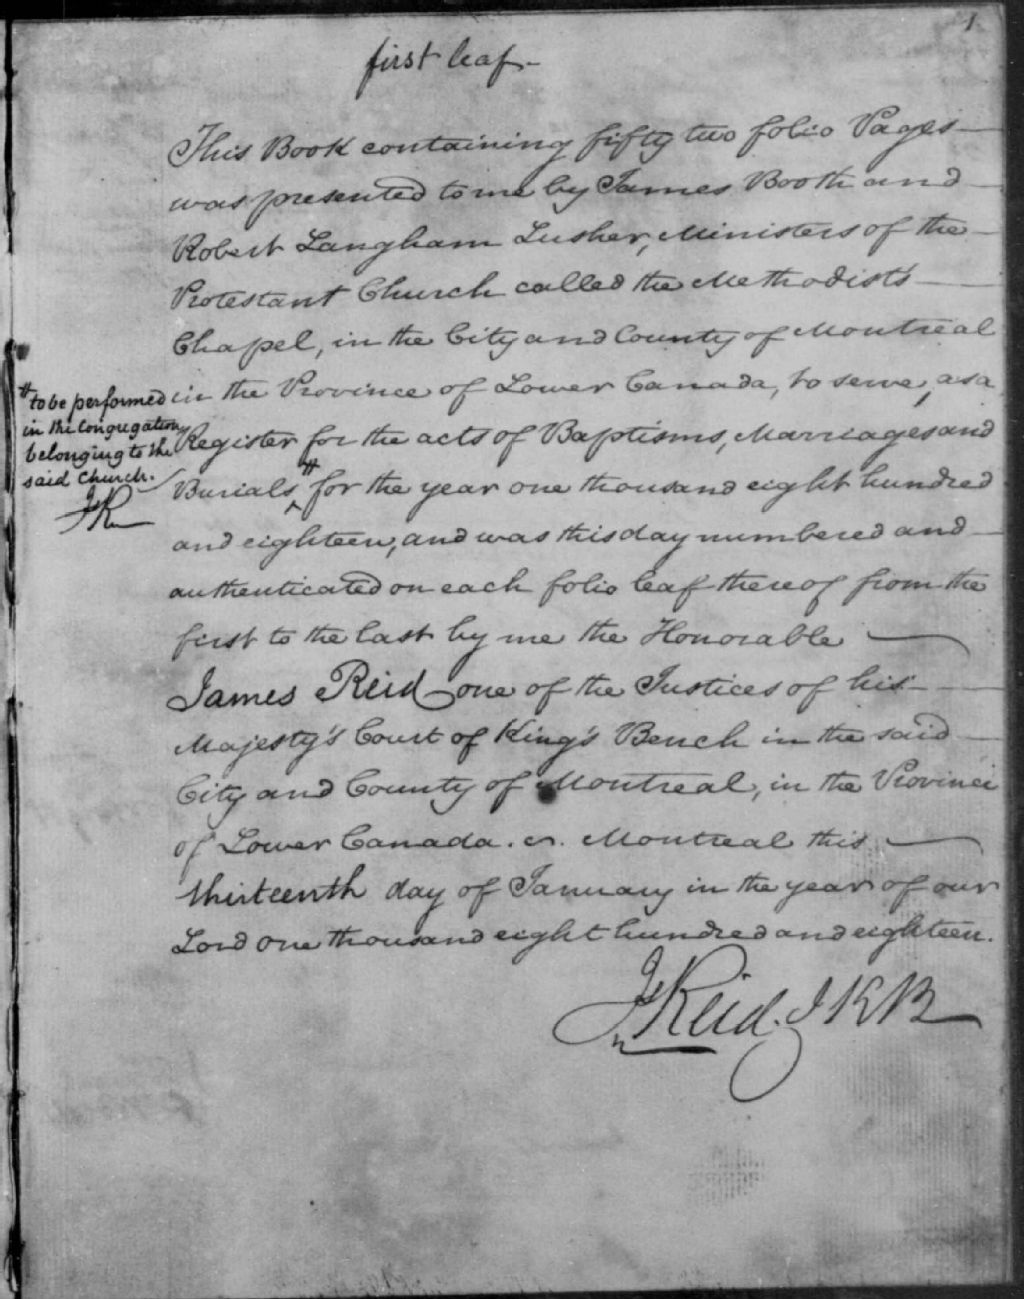 1
first leaf.
This Book containing fifty two folio Pages
was presented to me by James Booth and
Robert Langham Lusher, Ministers of the
Protestant Church called the Methodists
Chapel, in the City and County of Montreal
in the Province of Lower Canada, to serve, as a
Register for the acts of Baptisms, Marriages and
Burials ^# for the year one thousand eight hundred
and eighteen, and was this day numbered and
authenticated on each folio leaf thereof from the
first to the last by me the Honorable
James Reid one of the Justices of his
Majesty's Court of King's Bench in the said
City and County of Montreal, in the Province
of Lower Canada. Montreal this
thirteenth day of January in the year of our
Lord one thousand eight hundred and eighteen.
J Reid. J K B
# to be performed
in the Congregation
belonging to the
said Church.
JR